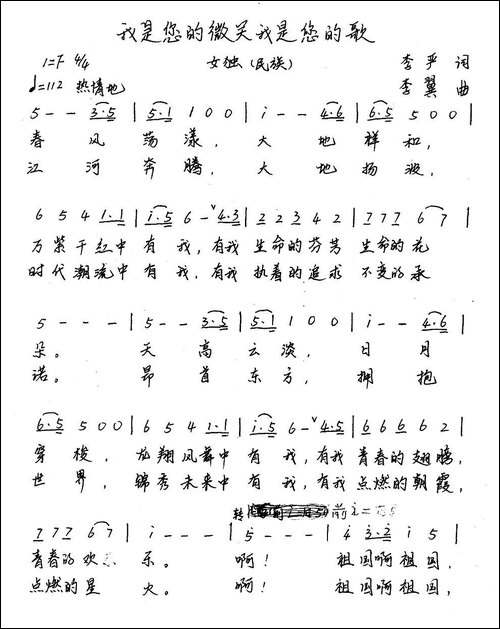 我是您的微笑我是您的歌
1=F 4/4
女独(民族)
李严 词
♩=112 热情地
李翼 曲
5 - - 3·5 | 5·1 1 0 0 | i - - 4·6 | 6·5 5 0 0 |
春 风 荡 漾, 大 地 祥 和,
江 河 奔 腾, 大 地 扬 波,
6 5 4 1·1 | i·5 6 - ∨ 4·3 | 2 2 3 4 2 | 7 7 7 6 7 |
万紫千红中 有 我, 有我 生命的芬芳 生命的花
时代潮流中 有 我, 有我 执着的追求 不变的承
5 - - - | 5 - - 3·5 | 5·1 1 0 0 | i - - 4·6 |
朵。 天 高 云 淡, 日 月
诺。 昂 首 东 方, 拥 抱
6·5 5 0 0 | 6 5 4 1·1 | i·5 6 - ∨ 4·5 | 6 6 6 6 2 |
穿 梭, 龙翔凤舞中 有 我, 有我 青春的翅膀,
世 界, 锦秀未来中 有 我, 有我 点燃的朝霞,
转 前 i =
7 7 7 6 7 | i - - - | 5 - - - | 4 3·2 i 5 |
青春的欢 乐。 啊! 祖国啊祖国,
点燃的星 火。 啊! 祖国啊祖国,